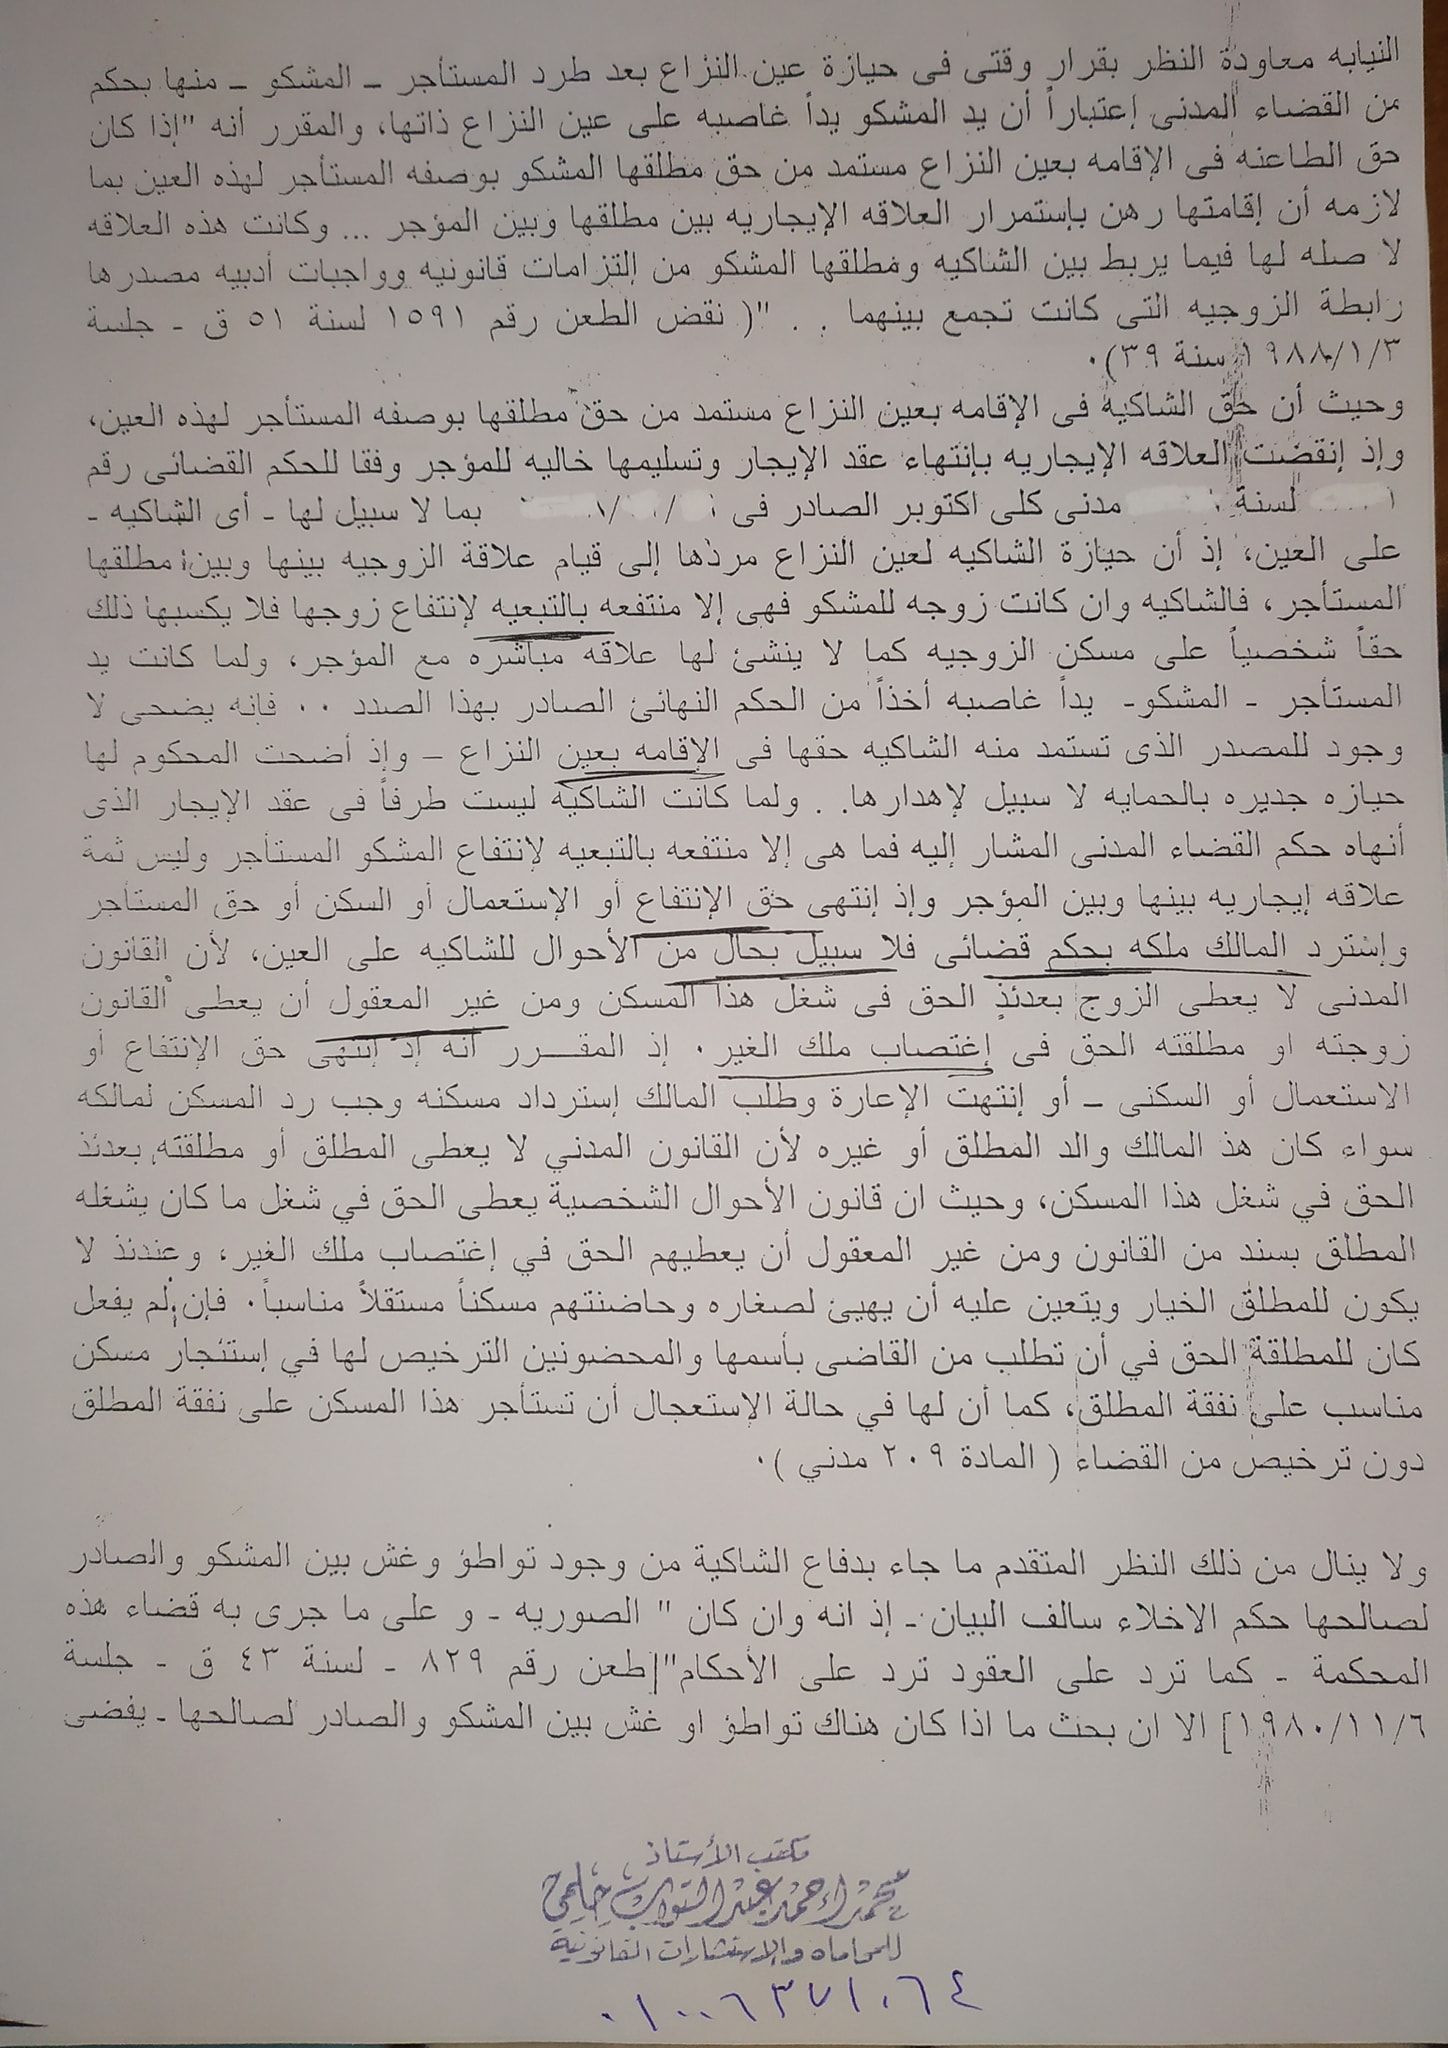 النيابه معاودة النظر بقرار وقتى فى حيازة عين النزاع بعد طرد المستأجر ـ المشكو ـ منها بحكم
من القضاء المدنى إعتباراً أن يد المشكو يداً غاصبه على عين النزاع ذاتها، والمقرر أنه "إذا كان
حق الطاعنه فى الإقامه بعين النزاع مستمد من حق مطلقها المشكو بوصفه المستأجر لهذه العين بما
لازمه أن إقامتها رهن بإستمرار العلاقه الإيجاريه بين مطلقها وبين المؤجر ... وكانت هذه العلاقه
لا صله لها فيما يربط بين الشاكيه ومطلقها المشكو من إلتزامات قانونيه وواجبات أدبيه مصدرها
رابطة الزوجيه التى كانت تجمع بينهما . . "( نقض الطعن رقم ١٥٩١ لسنة ٥١ ق - جلسة
١٩٨٨/١/٣ سنة ٣٩).
وحيث أن حق الشاكيه فى الإقامه بعين النزاع مستمد من حق مطلقها بوصفه المستأجر لهذه العين،
وإذ إنقضت العلاقه الإيجاريه بإنتهاء عقد الإيجار وتسليمها خاليه للمؤجر وفقا للحكم القضائى رقم
لسنة مدنى كلى اكتوبر الصادر فى بما لا سبيل لها - أى الشاكيه -
على العين، إذ أن حيازة الشاكيه لعين النزاع مردها إلى قيام علاقة الزوجيه بينها وبين مطلقها
المستأجر، فالشاكيه وان كانت زوجه للمشكو فهى إلا منتفعه بالتبعيه لإنتفاع زوجها فلا يكسبها ذلك
حقاً شخصياً على مسكن الزوجيه كما لا ينشئ لها علاقه مباشره مع المؤجر، ولما كانت يد
المستأجر - المشكو- يداً غاصبه أخذاً من الحكم النهائئ الصادر بهذا الصدد .. فإنه يضحى لا
وجود للمصدر الذى تستمد منه الشاكيه حقها فى الإقامه بعين النزاع – وإذ أضحت المحكوم لها
حيازه جديره بالحمايه لا سبيل لإهدارها. . ولما كانت الشاكيه ليست طرفاً فى عقد الإيجار الذى
أنهاه حكم القضاء المدنى المشار إليه فما هى إلا منتفعه بالتبعيه لإنتفاع المشكو المستأجر وليس ثمة
علاقه إيجاريه بينها وبين المؤجر وإذ إنتهى حق الإنتفاع أو الإستعمال أو السكن أو حق المستأجر
وإسترد المالك ملكه بحكم قضائى فلا سبيل بحال من الأحوال للشاكيه على العين، لأن القانون
المدنى لا يعطى الزوج بعدئذ الحق فى شغل هذا المسكن ومن غير المعقول أن يعطى القانون
زوجته او مطلقته الحق فى إغتصاب ملك الغير. إذ المقـــرر أنه إذ إنتهى حق الإنتفاع أو
الاستعمال أو السكنى ــ أو إنتهت الإعارة وطلب المالك إسترداد مسكنه وجب رد المسكن لمالكه
سواء كان هذ المالك والد المطلق أو غيره لأن القانون المدني لا يعطى المطلق أو مطلقته بعدئذ
الحق في شغل هذا المسكن، وحيث ان قانون الأحوال الشخصية يعطى الحق في شغل ما كان يشغله
المطلق بسند من القانون ومن غير المعقول أن يعطيهم الحق في إغتصاب ملك الغير، وعندئذ لا
يكون للمطلق الخيار ويتعين عليه أن يهيئ لصغاره وحاضنتهم مسكناً مستقلاً مناسباً. فإن لم يفعل
كان للمطلقة الحق في أن تطلب من القاضى بأسمها والمحضونين الترخيص لها في إستئجار مسكن
مناسب على نفقة المطلق، كما أن لها في حالة الإستعجال أن تستأجر هذا المسكن على نفقة المطلق
دون ترخيص من القضاء ( المادة ٢٠٩ مدني ).
ولا ينال من ذلك النظر المتقدم ما جاء بدفاع الشاكية من وجود تواطؤ وغش بين المشكو والصادر
لصالحها حكم الاخلاء سالف البيان - إذ انه وان كان " الصوريه - و على ما جرى به قضاء هذه
المحكمة - كما ترد على العقود ترد على الأحكام"[طعن رقم ٨٢٩ - لسنة ٤٣ ق - جلسة
١٩٨٠/١١/٦] الا ان بحث ما اذا كان هناك تواطؤ او غش بين المشكو والصادر لصالحها - يفضى
مكتب الأستاذ
محمد احمد عبدالتواب حلمي
للمحاماه والإستشارات القانونية
٠١٠٠٦٣٧١٠٦٤